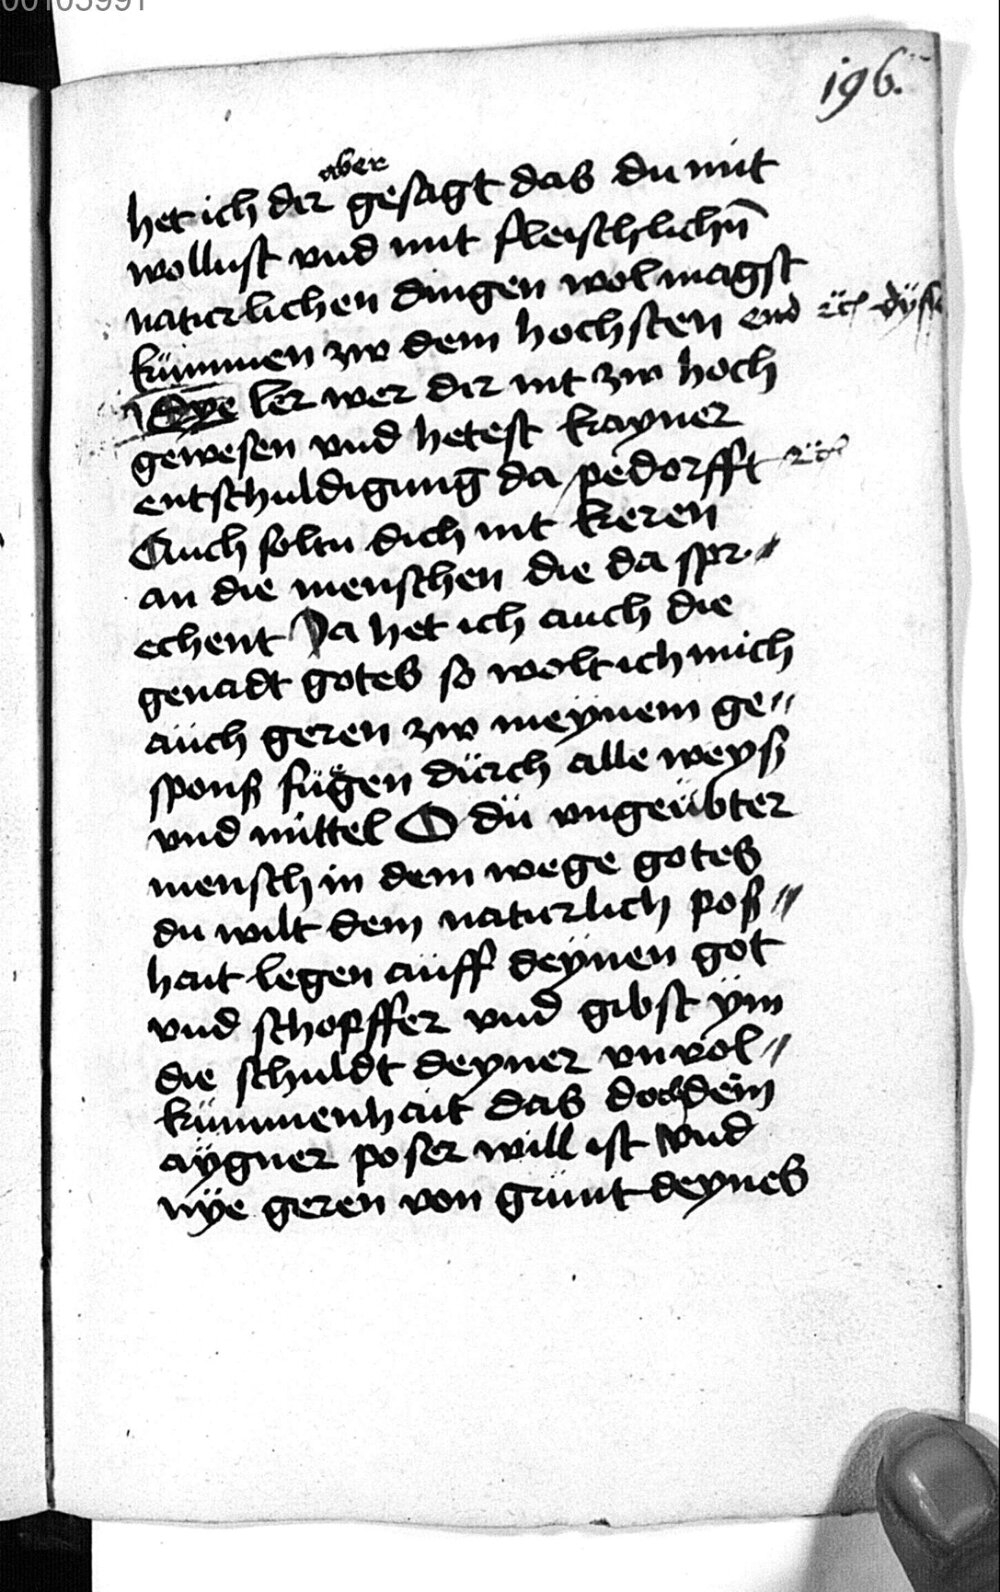 00103991
196.
aber
het ich dir gesagt das du mit
wollust vnd mit fleischlichn̄
naturlichen dingen wol magst
kümmen zw dem hochsten end
dye ler wer dir nit zw hoch
gewesen vnd hetest kayner
entschuldigung da pedorfft
Auch soltu dich nit keren
an die menschen die da spr⸗
echent Ja het ich auch die
genadt gotes so wolt ich mich
aüch geren zw meynem ge⸗
sponß fügen dürch alle weyß
vnd mittel O dü vngeübter
mensch in dem wege gotes
du wilt dem naturlich poß⸗
hait legen aüff deynen got
vnd schopffer vnd gibst ÿm
die schuldt deyner vnvol⸗
kümmenhait das doch dein
aÿgner poser will ist vnd
nÿe geren von grünt deynes